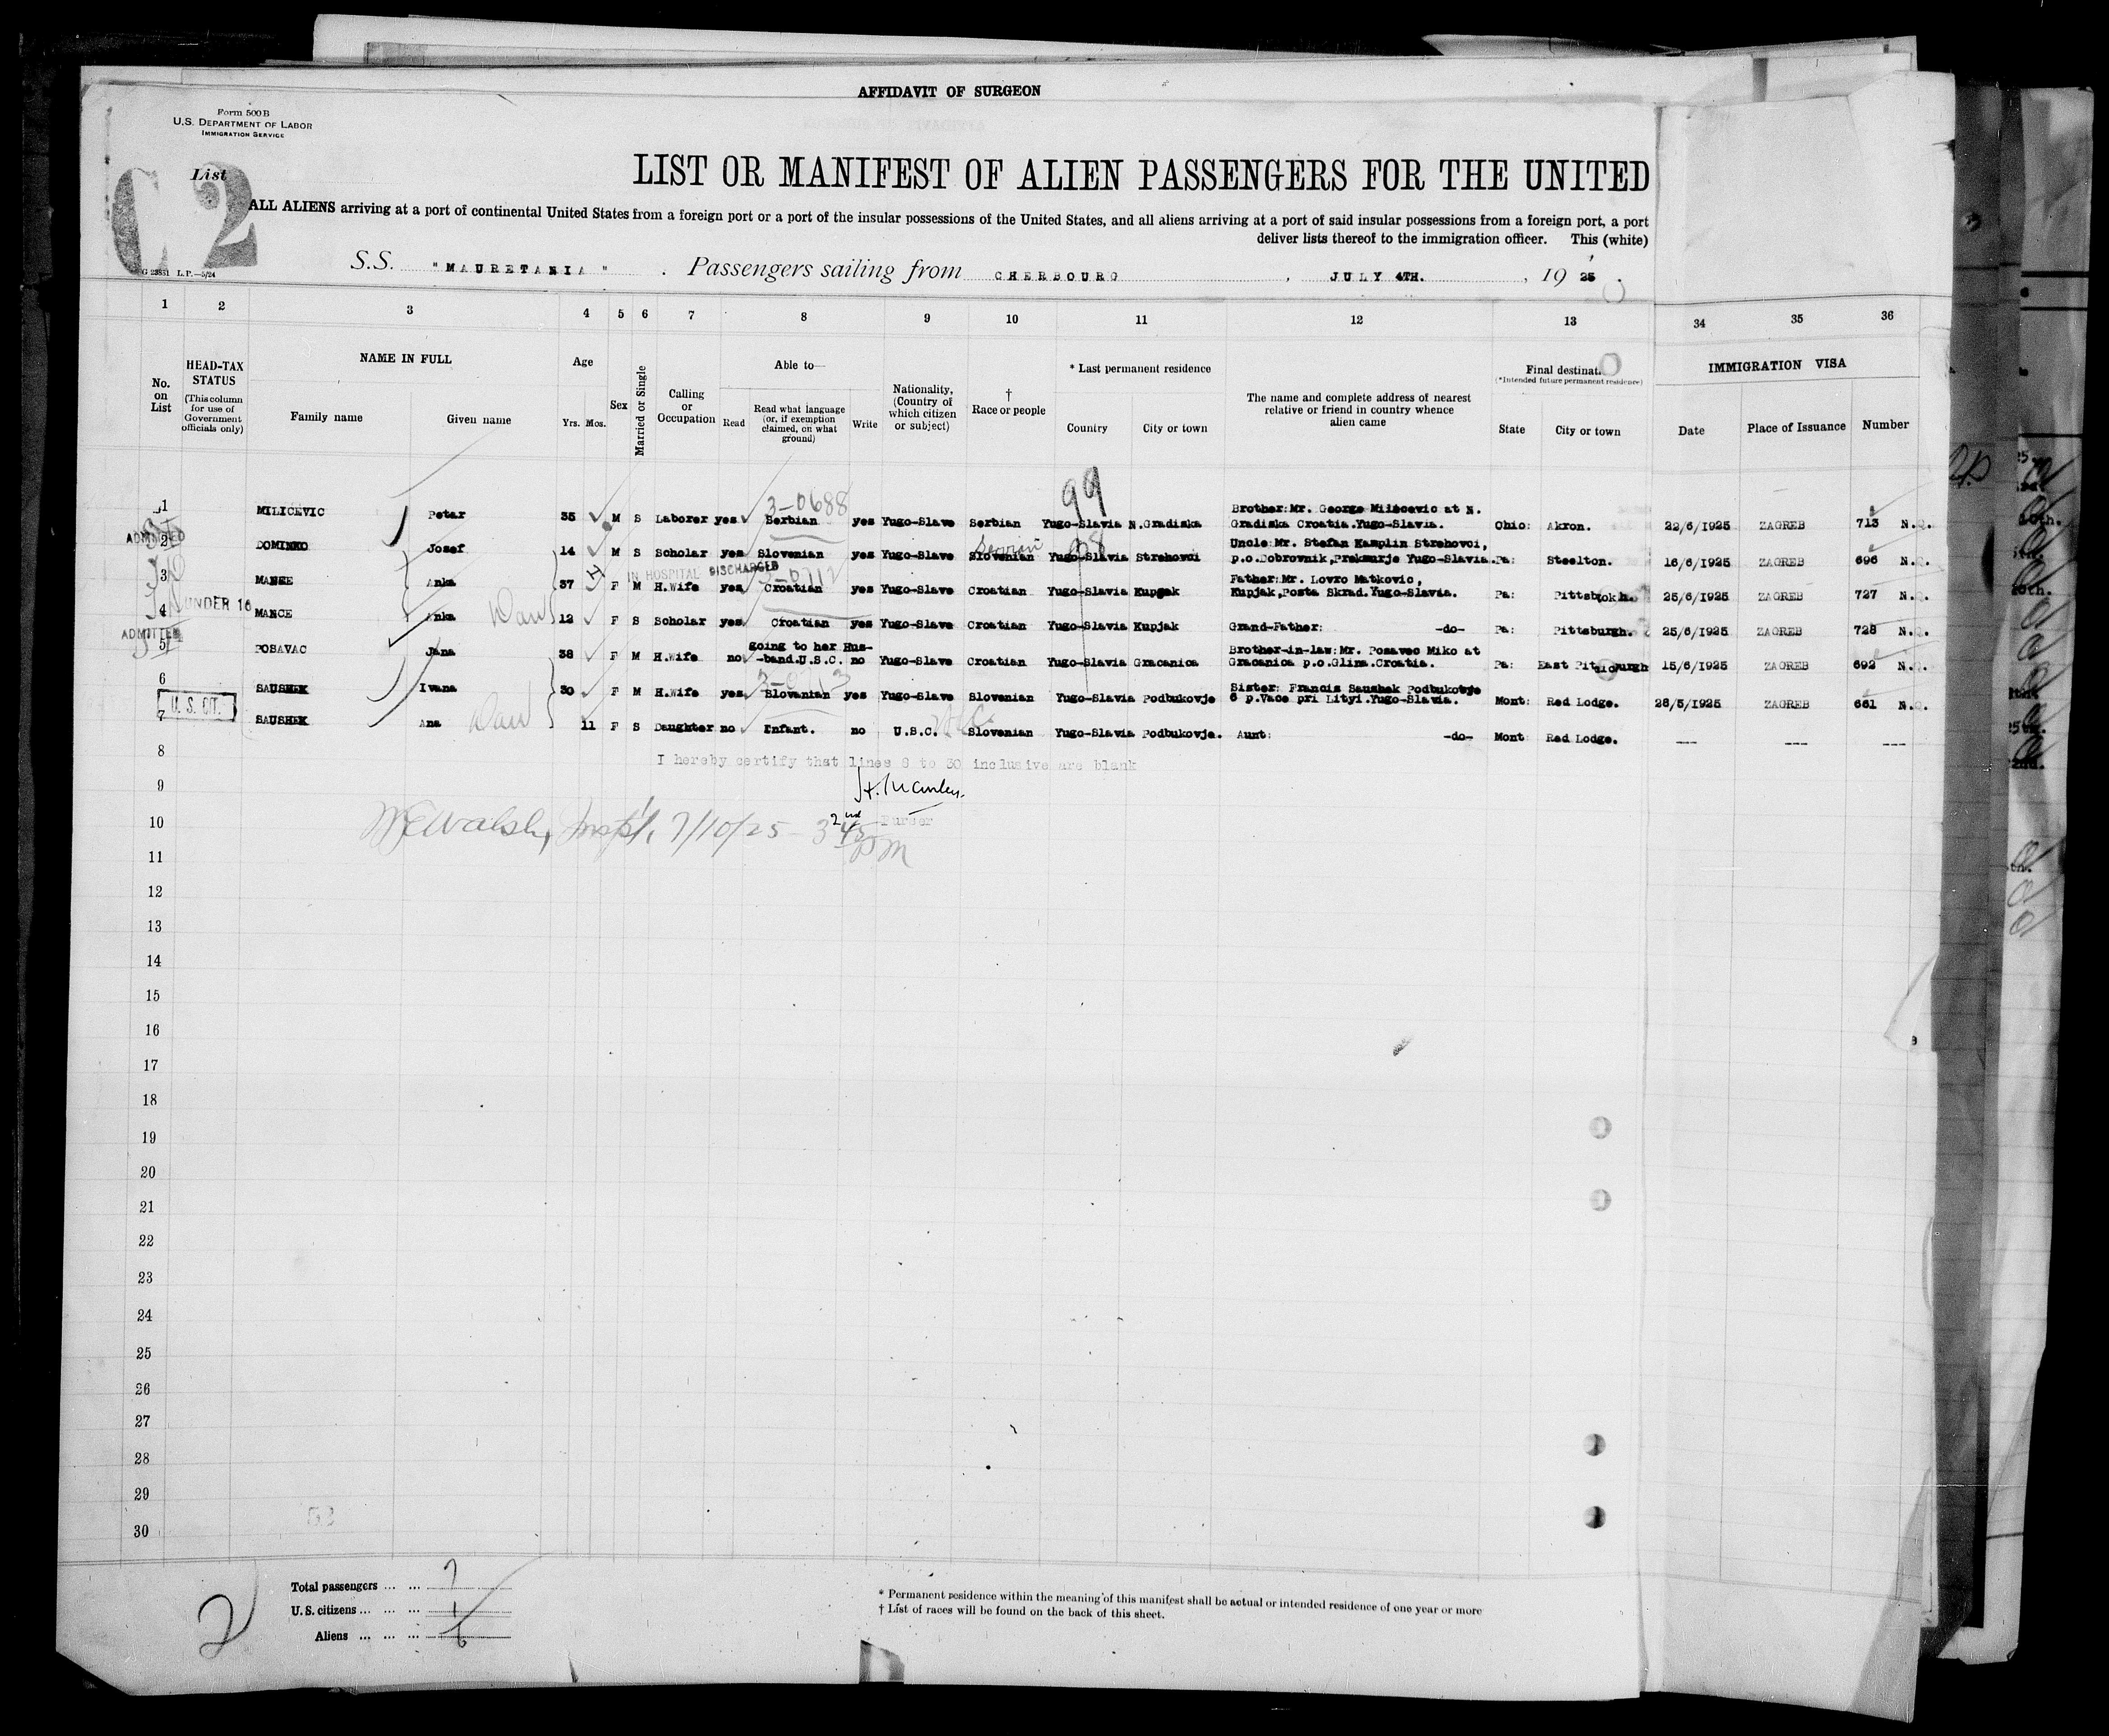 AFFIDAVIT OF SURGEON
Form 500B
U.S. DEPARTMENT OF LABOR
IMMIGRATION SERVICE
List
2
LIST OR MANIFEST OF ALIEN PASSENGERS FOR THE UNITED
ALL ALIENS arriving at a port of continental United States from a foreign port or a port of the insular possessions of the United States, and all aliens arriving at a port of said insular possessions from a foreign port, a port
deliver lists thereof to the immigration officer. This (white)
L.P.—5/24
S.S. "MAURETANIA". Passengers sailing from CHERBOURG, JULY 4TH., 1925.
1 2 3 4 5 6 7 8 9 10 11 12 13 34 35 36
No. on List
HEAD-TAX STATUS (This column for use of Government officials only)
NAME IN FULL
Family name Given name
Age
Yrs. Mos.
Sex
Married or Single
Calling or Occupation
Able to—
Read
Read what language (or, if exemption claimed, on what ground)
Write
Nationality, (Country of which citizen or subject)
† Race or people
* Last permanent residence
Country City or town
The name and complete address of nearest relative or friend in country whence alien came
Final destinat
(*Intended future permanent residence)
State City or town
IMMIGRATION VISA
Date Place of Issuance Number
99
3-0688
1 MILICEVIC Petar 35 M S Laborer yes Serbian yes Yugo-Slave Serbian Yugo-Slavia N.Gradiska Brother:Mr. George Milicevic at N. Gradiska Croatia.Yugo-Slavia. Ohio: Akron. 22/6/1925 ZAGREB 713 N.Q.
ADMITTED
2 DOMINKO Josef 14 M S Scholar yes Slovenian yes Yugo-Slave Slovenian Yugo-Slavia Strehovci Uncle:Mr. Stefan Kamplin Strehovci, p.o.Dobrovnik,Prekmurje Yugo-Slavia. Pa: Steelton. 16/6/1925 ZAGREB 696 N.Q.
IN HOSPITAL DISCHARGED
3-0712
3 MANCE Anka 37 F M H.Wife yes Croatian yes Yugo-Slave Croatian Yugo-Slavia Kupjak Father:Mr. Lovro Matkovic, Kupjak,Posta Skrad.Yugo-Slavia. Pa: 25/6/1925 ZAGREB 727 N.Q.
UNDER 16
4 MANCE Anka 12 F S Scholar yes Croatian yes Yugo-Slave Croatian Yugo-Slavia Kupjak Grand-Father: -do- Pa: Pittsburgh. 25/6/1925 ZAGREB 728 N.Q.
ADMITTED
5 POSAVAC Jana 38 F M H.Wife no going to her Hus--band.U.S.C. no Yugo-Slave Croatian Yugo-Slavia Gracanica Brother-in-law:Mr. Posavec Miko at Gracanica p.o.Glina.Croatia. Pa: East 15/6/1925 ZAGREB 692 N.Q.
3-0713
6 SAUSHEK Ivana 30 F M H.Wife yes Slovenian yes Yugo-Slave Slovenian Yugo-Slavia Podbukovje Sister: Francis Saushek Podbukovje 6 p.Vace pri Lityi.Yugo-Slavia. Mont: Red Lodge. 28/5/1925 ZAGREB 661 N.Q.
U. S. CIT.
7 SAUSHEK Ana 11 F S Daughter no Infant. no U.S.C. Slovenian Yugo-Slavia Podbukovje. Aunt: -do- Mont Red Lodge. --- --- ---
8
I hereby certify that lines 8 to 30 inclusive are blank
9
10
2nd Purser
WEWalsh, Insp'r, 7/10/25 - 3 45 PM
11
12
13
14
15
16
17
18
19
20
21
22
23
24
25
26
27
28
29
30
52
2
Total passengers ... ... 7
U.S. citizens ... ... ... 1
Aliens ... ... ... 6
* Permanent residence within the meaning of this manifest shall be actual or intended residence of one year or more
† List of races will be found on the back of this sheet.